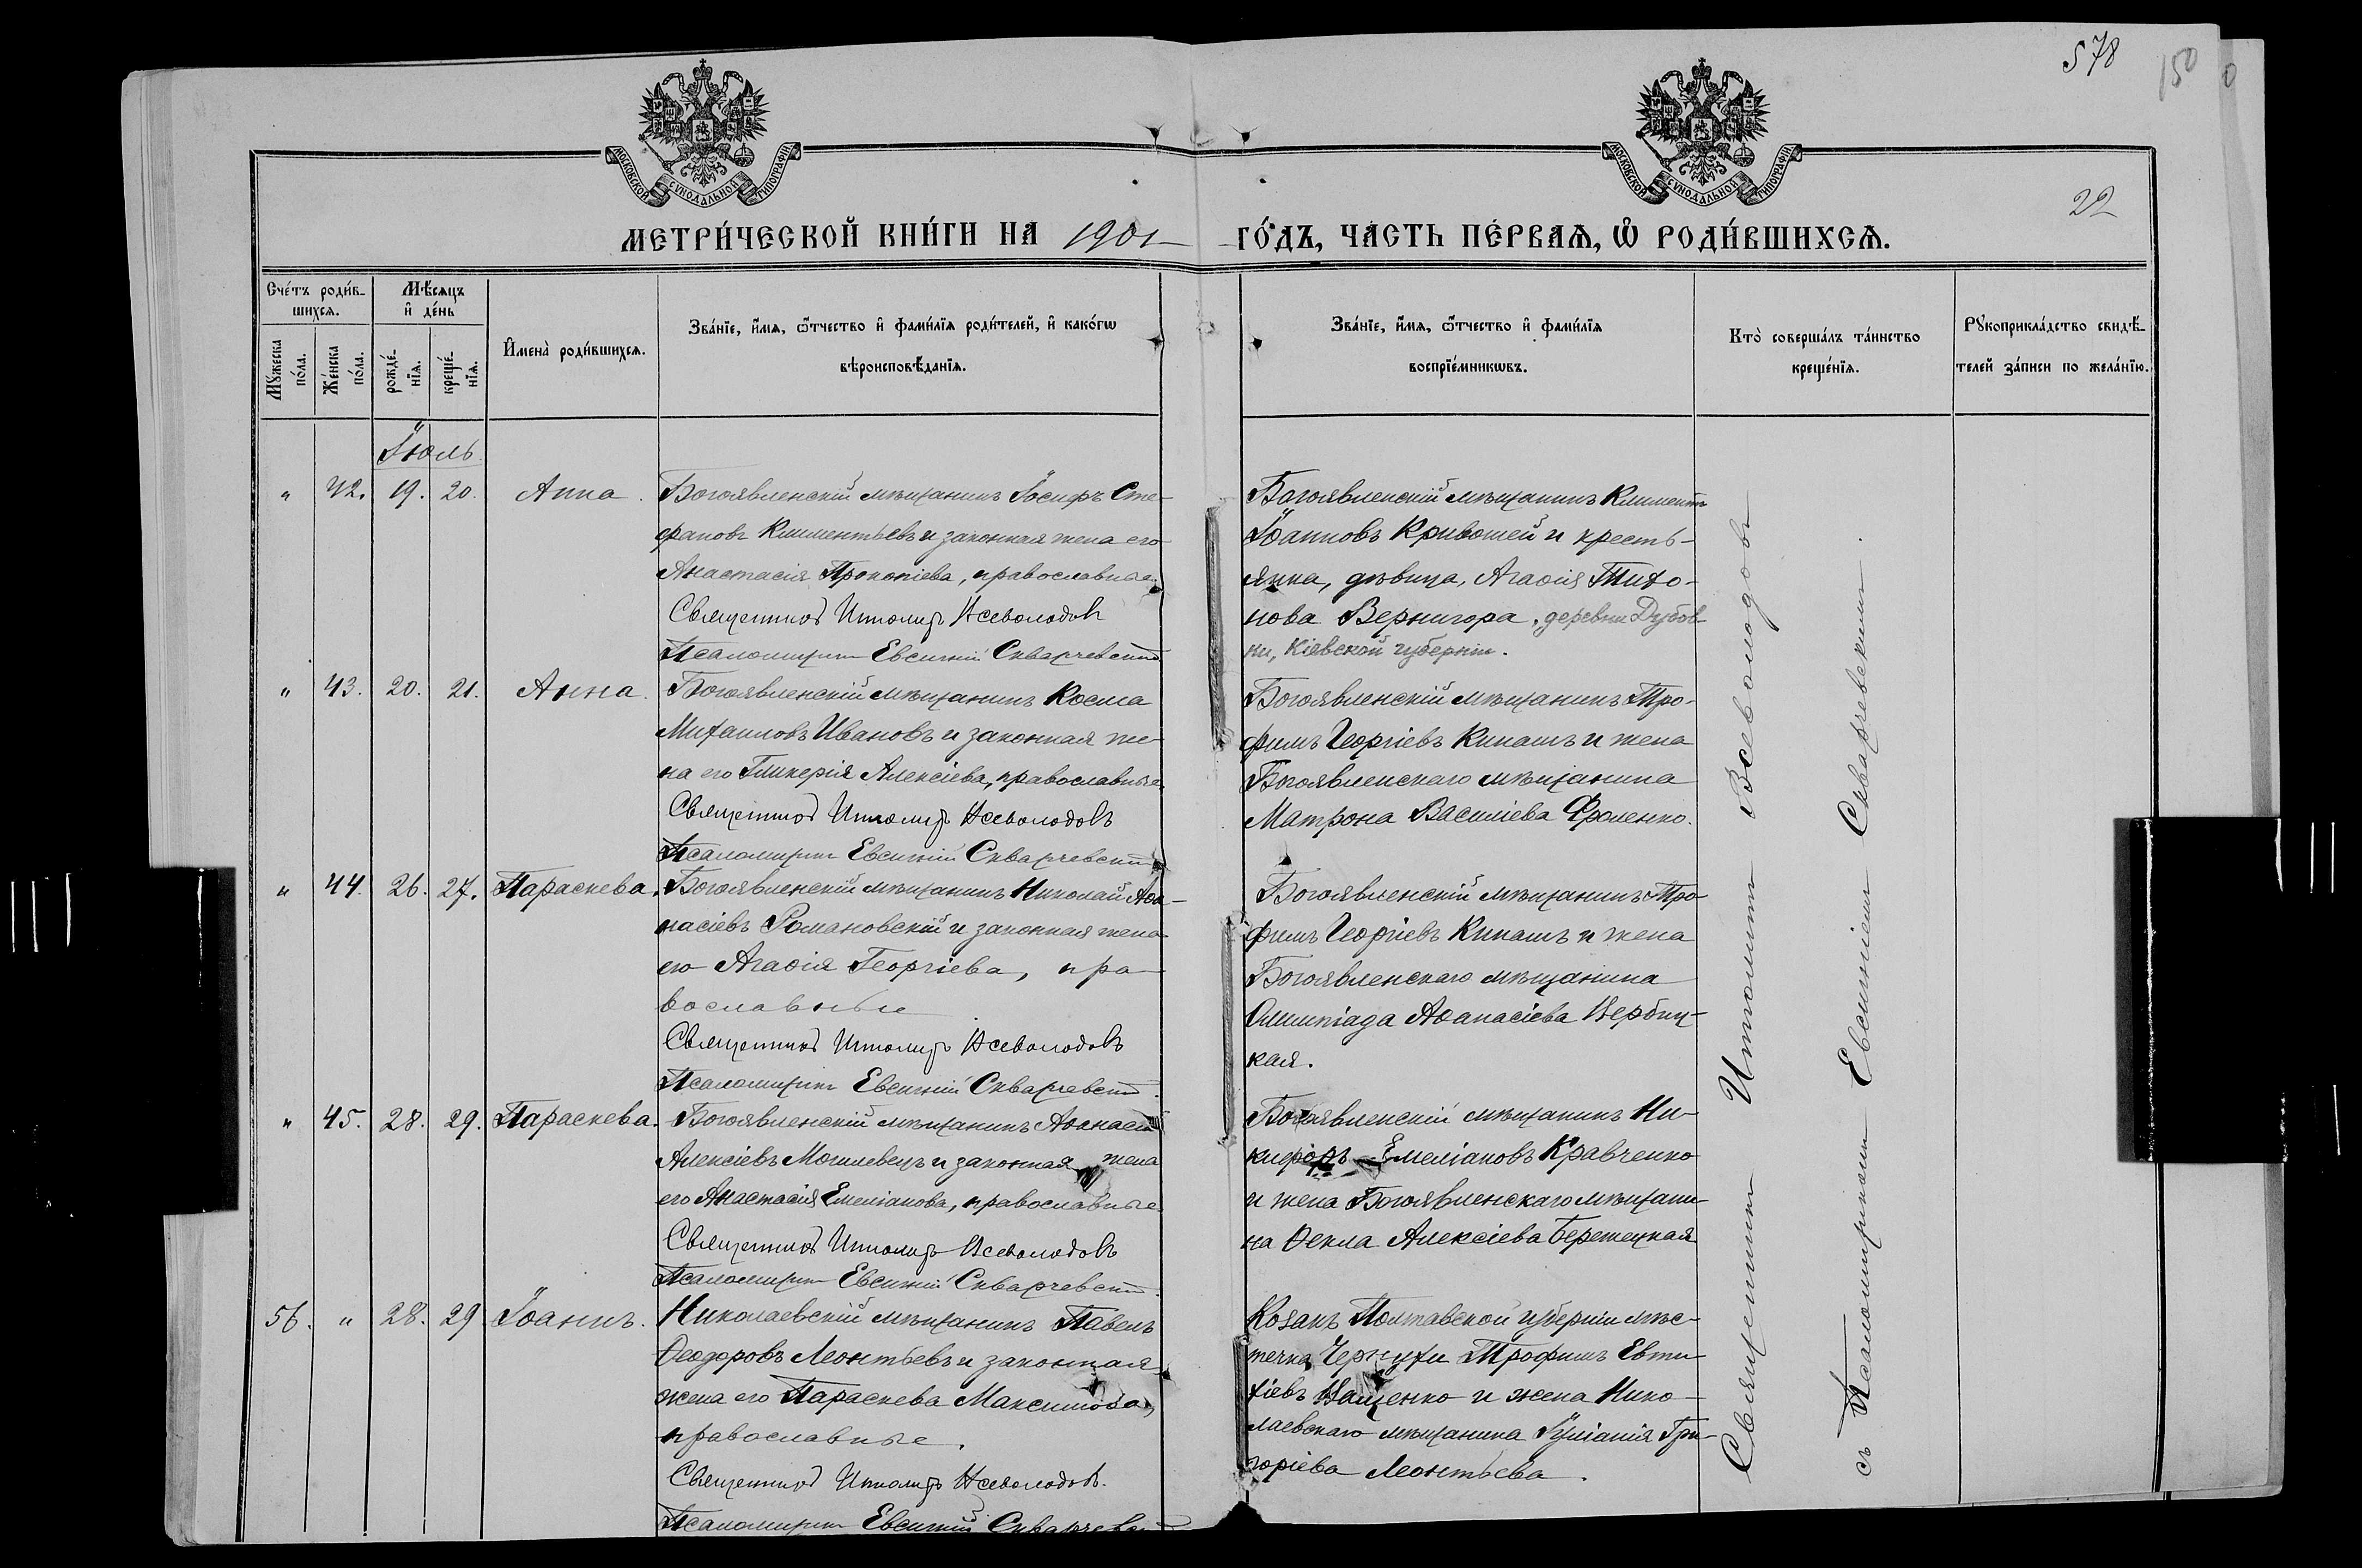 578
150
0
22
МОСКОВСКОЙ СУНОДАЛЬНОЙ ТИПОГРАФІИ
МОСКОВСКОЙ СУНОДАЛЬНОЙ ТИПОГРАФІИ
МЕТРИ́ЧЕСКОЙ КНИ́ГИ НА 1901 ГО́ДЪ, ЧАСТЬ ПЕ́РВАѦ, Ѽ РОДИ́ВШИХСѦ.
Сче́тъ роди́в-
шихсѧ.
Мꙋ́жеска по́ла.
Же́нска по́ла.
Мѣ́сѧцъ
и҆ де́нь
рожде́-
нїѧ.
креще́-
нїѧ.
И҆мена̀ роди́вшихсѧ.
Зва́нїе, и҆́мѧ, ѻ҆́тчество и҆ фами́лїѧ роди́телей, и҆ како́гѡ
вѣроисповѣ́данїѧ.
Зва́нїе, и҆́мѧ, ѻ҆́тчество и҆ фами́лїѧ
воспрїе́мникѡвъ.
Кто̀ соверша́лъ та́инство
креще́нїѧ.
Рꙋкоприкла́дство свидѣ́-
телей за́писи по жела́нїю.
Іюль
" 42. 19. 20. Анна.
Богоявленскій мѣщанинъ Іосифъ Сте-
фановъ Климентьевъ и законная жена его
Анастасія Прокопіева, православные.
Священникъ Ипполитъ Всеволодовъ
Псаломщикъ Евсигній Скварчевскій
Богоявленскій мѣщанинъ Климентъ
Іоанновъ Кривошей и кресть-
янка, дѣвица, Агаѳія Тихо-
нова Вернигора, деревни Дубов-
ки, Кіевской губерніи.
" 43. 20. 21. Анна.
Богоявленскій мѣщанинъ Косма
Михаиловъ Ивановъ и законная же-
на его Гликерія Алексіева, православные.
Священникъ Ипполитъ Всеволодовъ
Псаломщикъ Евсигній Скварчевскій
Богоявленскій мѣщанинъ Тро-
фимъ Георгіевъ Кинашъ и жена
Богоявленскаго мѣщанина
Матрона Василіева Фроленко.
" 44. 26. 27. Параскева.
Богоявленскій мѣщанинъ Николай Аѳа-
насіевъ Романовскій и законная жена
его Агаѳія Георгіева, пра-
вославные
Священникъ Ипполитъ Всеволодовъ
Псаломщикъ Евсигній Скварчевскій
Богоявленскій мѣщанинъ Тро-
фимъ Георгіевъ Кинашъ и жена
Богоявленскаго мѣщанина
Олимпіада Аѳанасіева Вербиц-
кая.
" 45. 28. 29. Параскева.
Богоявленскій мѣщанинъ Аѳанасій
Алексіевъ Могилевецъ и законная жена
его Анастасія Емеліанова, православные
Священникъ Ипполитъ Всеволодовъ
Псаломщикъ Евсигній Скварчевскій
Богоявленскій мѣщанинъ Ни-
кифоръ Емеліановъ Кравченко
и жена Богоявленскаго мѣщани-
на Ѳекла Алексіева Бережецкая
56. " 28. 29 Іоаннъ.
Николаевскій мѣщанинъ Павелъ
Ѳеодоровъ Леонтьевъ и законная
жена его Параскева Максимова,
православные.
Священникъ Ипполитъ Всеволодовъ.
Псаломщикъ Евсигній Скварчевскій
Козакъ Полтавской губерніи мѣс-
течка Чернухи Трофимъ Евти-
хіевъ Иащенко и жена Нико-
лаевскаго мѣщанина Іуліанія Гри-
горіева Леонтьева.
Священникъ Ипполитъ Всеволодовъ
съ Псаломщикомъ Евсигніемъ Скварчевскимъ.